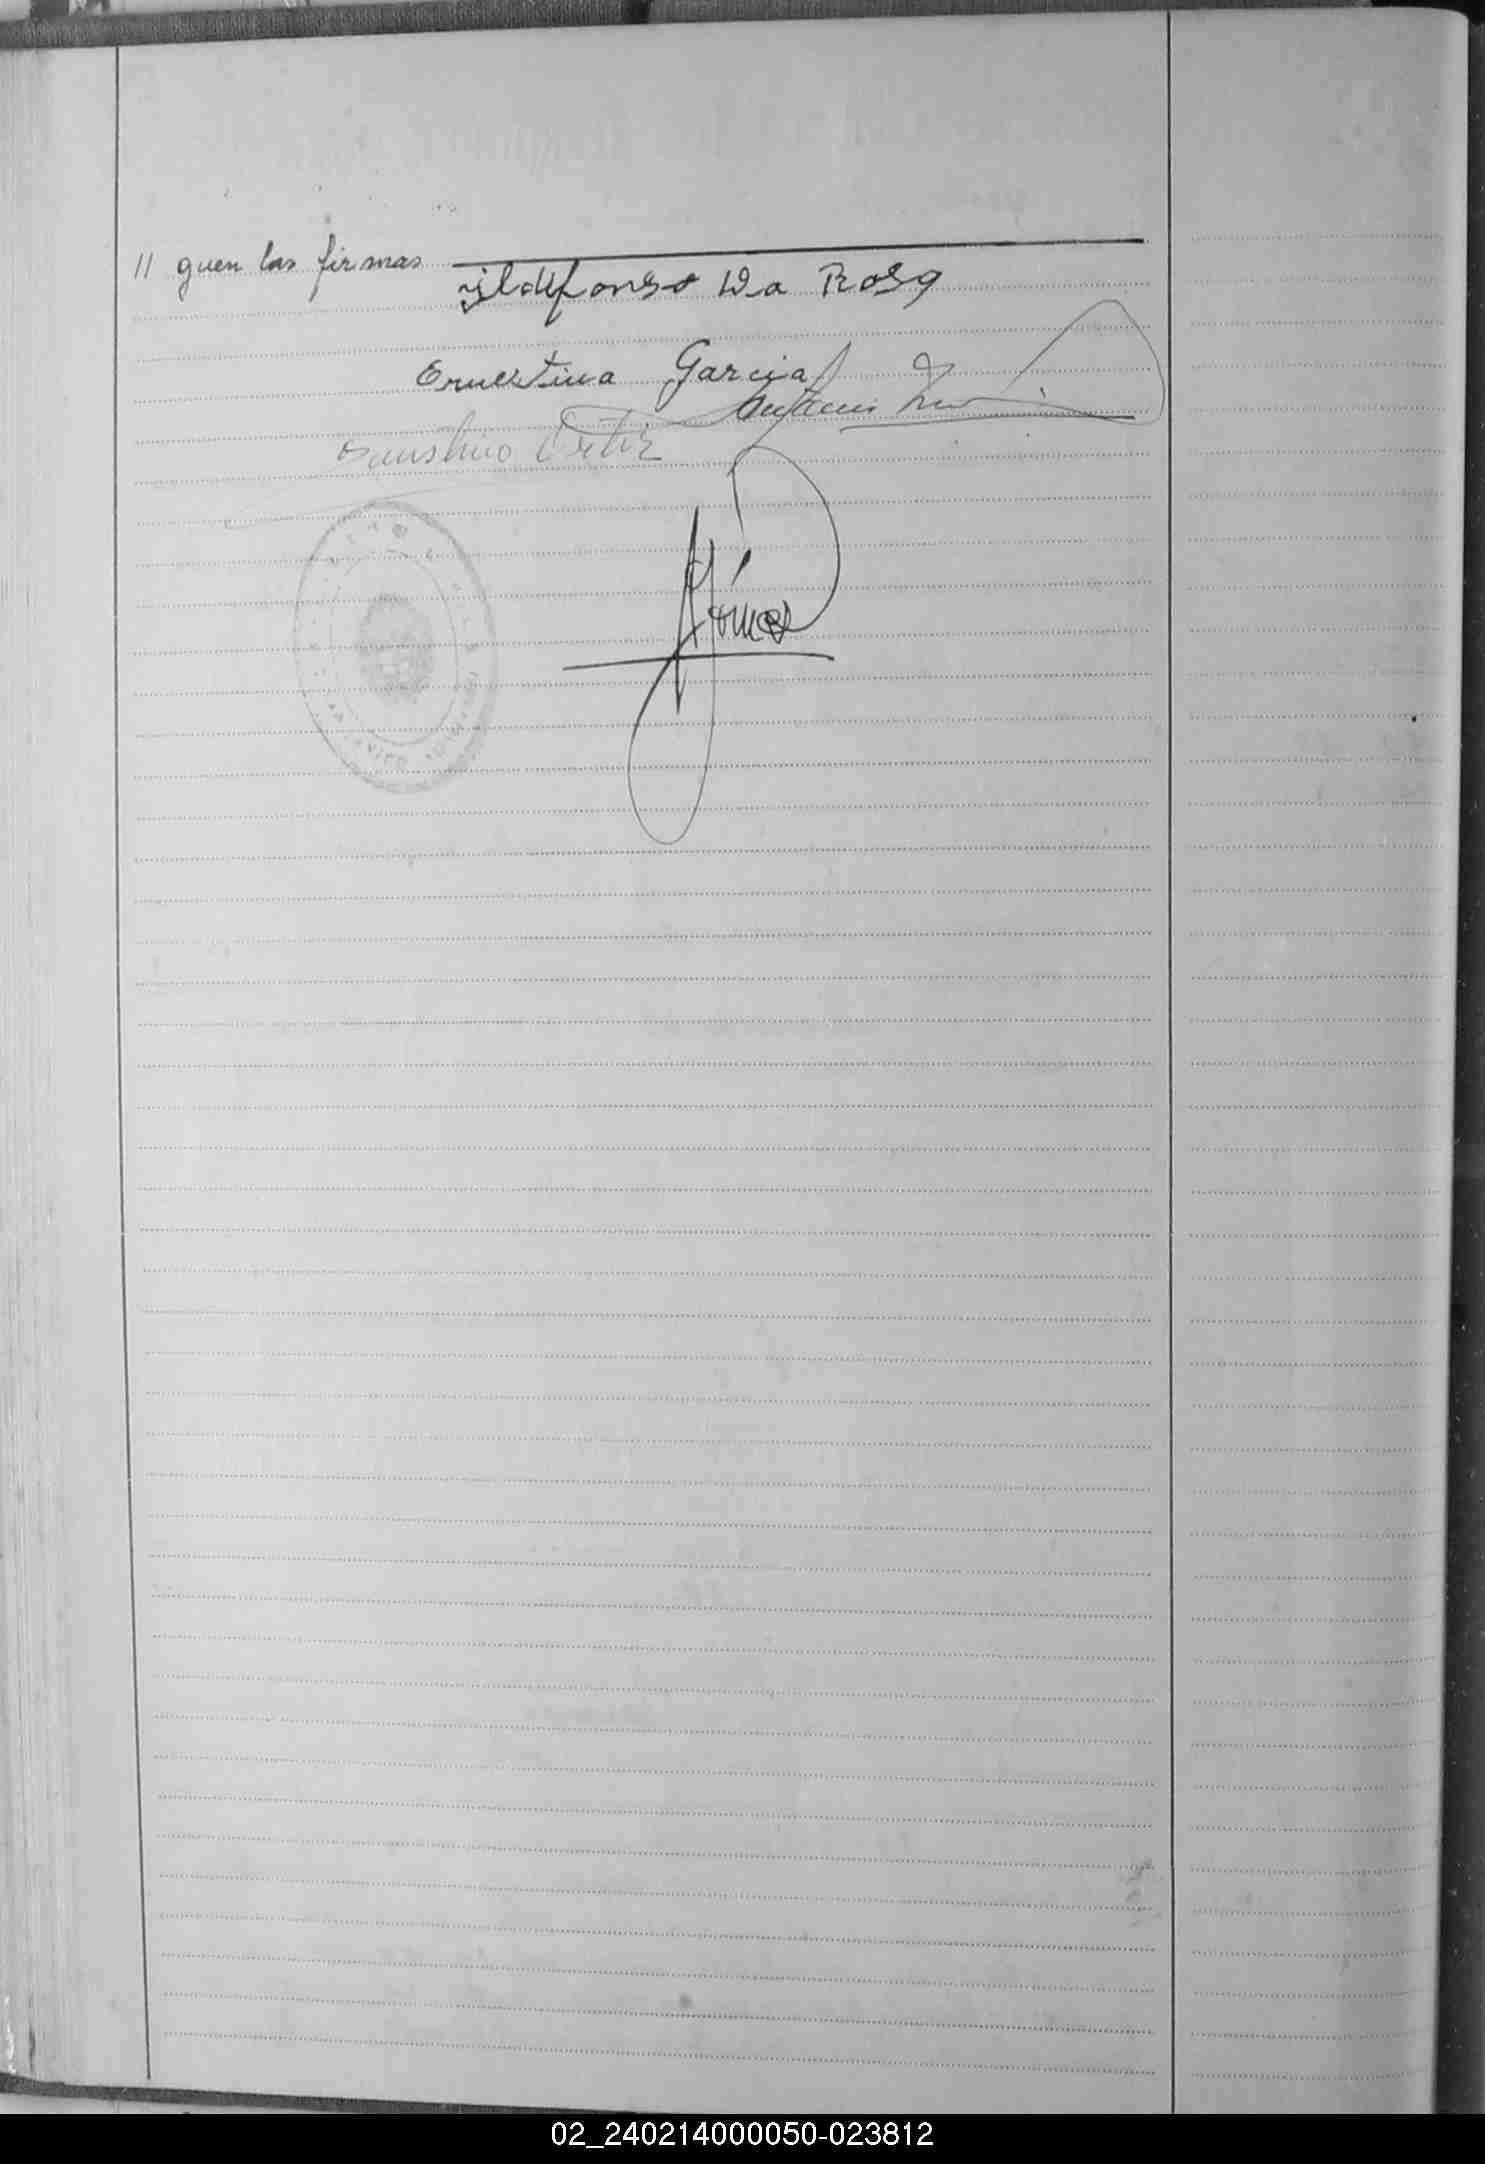 // guen las firmas
yldefonso Da Rosa
Ernestina Garcia
Faustino Ortiz
Gómez
02_240214000050-023812